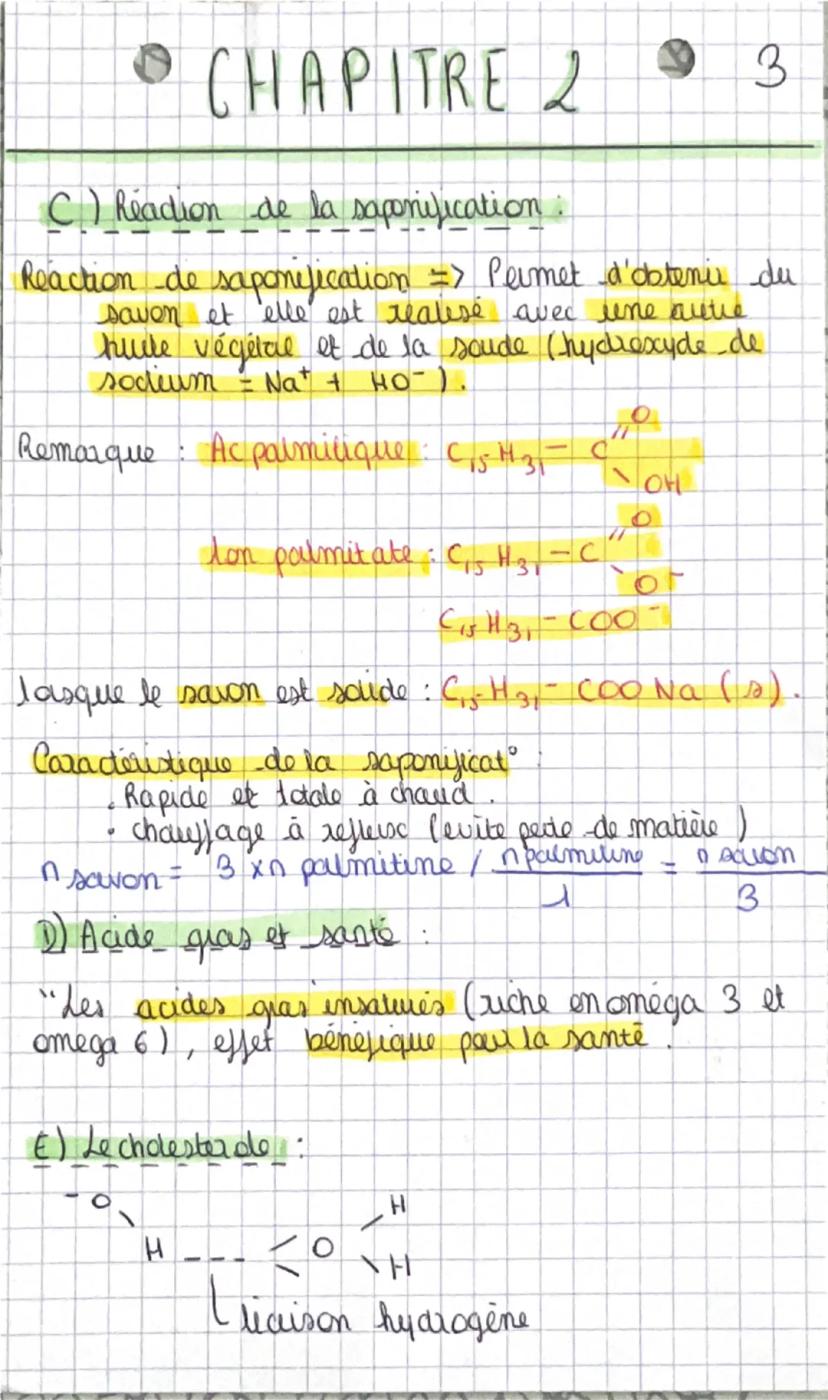 CHAPITRE 2 3
C) Réaction de la saponification :
Réaction de saponification => Permet d'obtenir du
savon et elle est réalisé avec une autre
huile végétale et de la soude (hydroxyde de
sodium = Na⁺ + HO⁻).
Remarque : Ac palmitique : C₁₅H₃₁ – C
O
OH
Ion palmitate : C₁₅H₃₁ – C
O
O⁻
C₁₅H₃₁ – COO⁻
lorsque le savon est solide : C₁₅H₃₁ – COO Na (s).
Caractéristique de la saponificat° :
. Rapide et totale à chaud.
. chauffage à reflux (evite perte de matière)
n savon = 3 x n palmitine / n palmitine / 1 = n savon / 3
D) Acide gras et santé :
"Les acides gras insaturés (riche en oméga 3 et
omega 6), effet bénéfique pour la santé.
E) Le cholesterole :
– O H
H --- O
H
liaison hydrogène